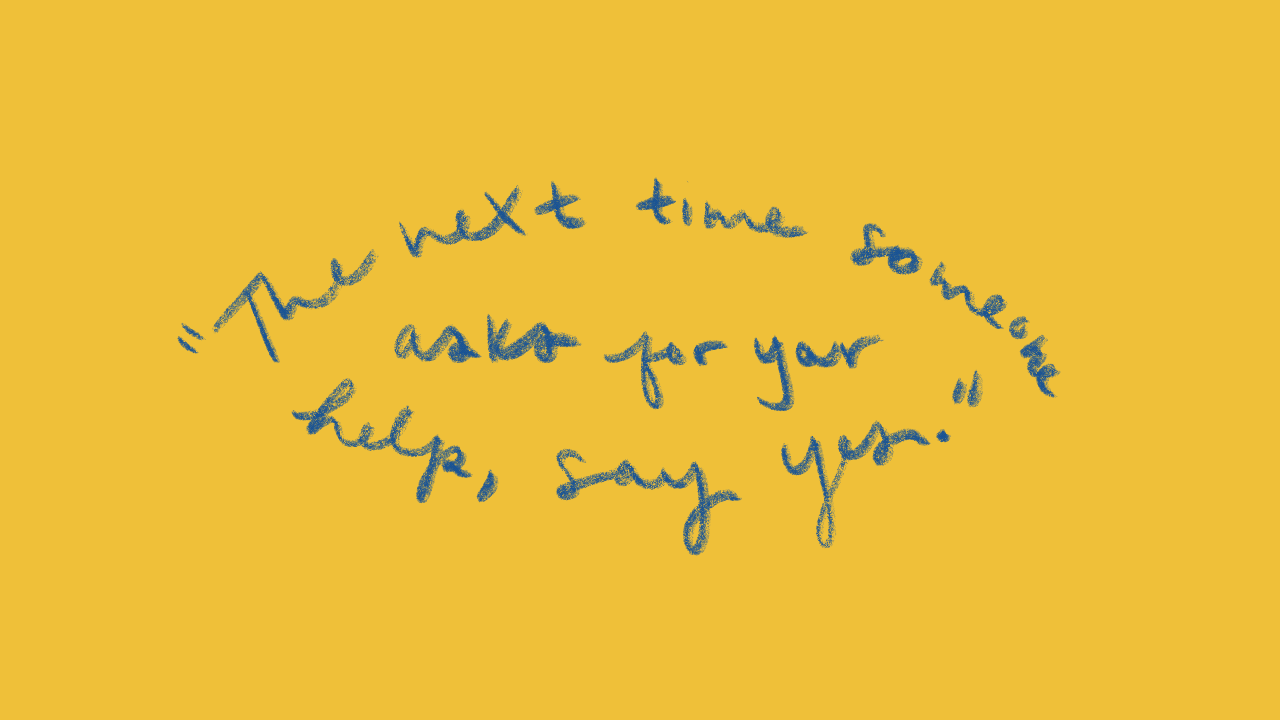 "The next time someone
asks for your
help, say yes."